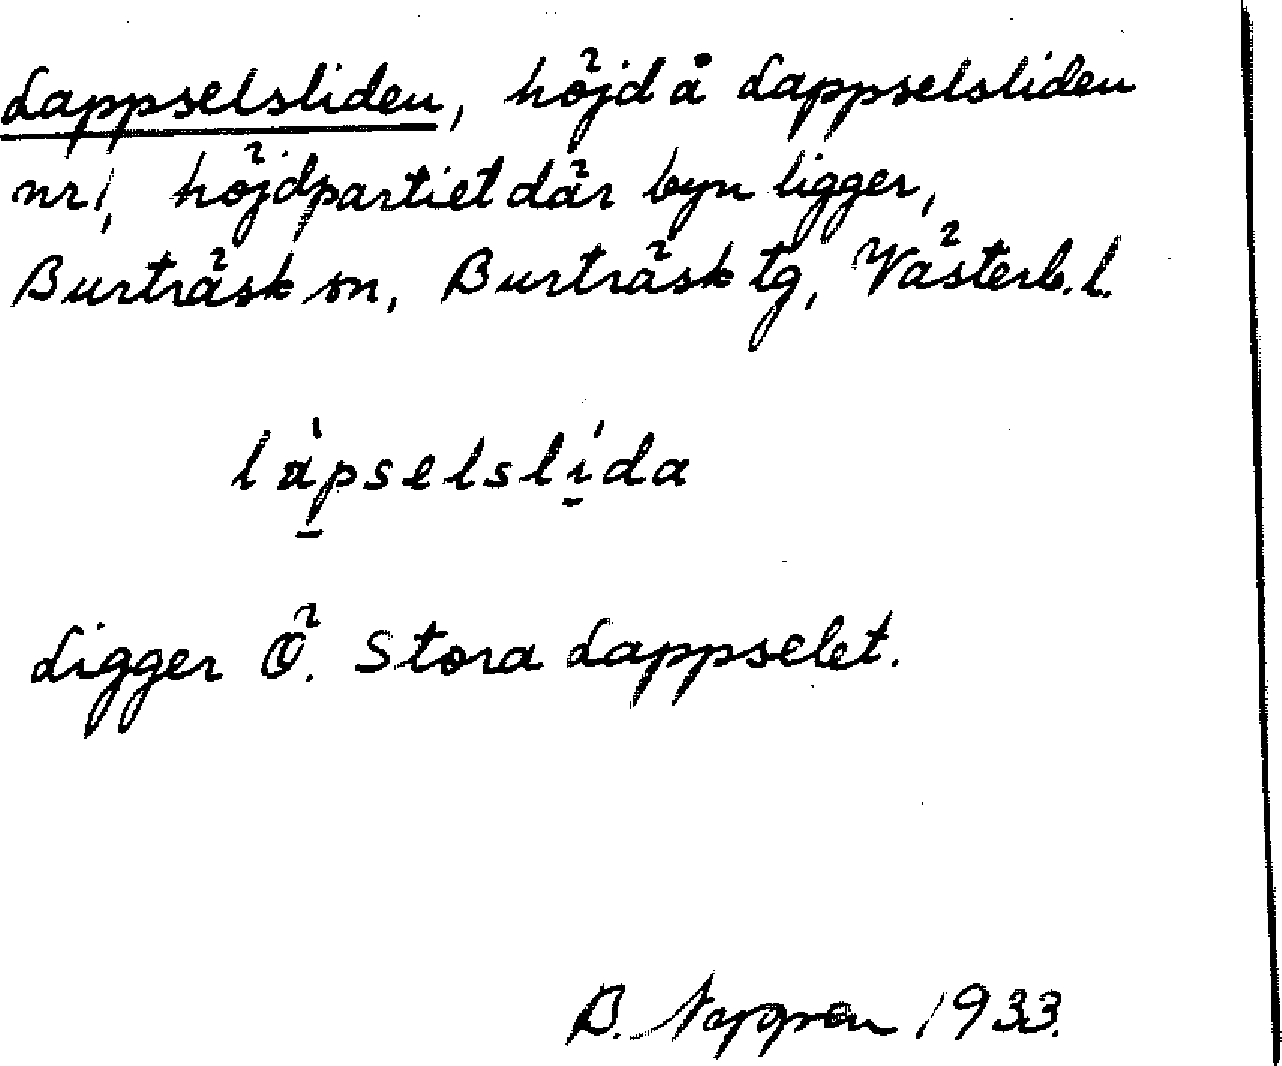 Lappselsliden, höjd å Lappselsliden
nr 1, höjdpartiet där byn ligger,
Burträsk sn, Burträsk tg, Västerb. l.
làpselslída
Ligger Ö. Stora Lappselet.
B. 1933.